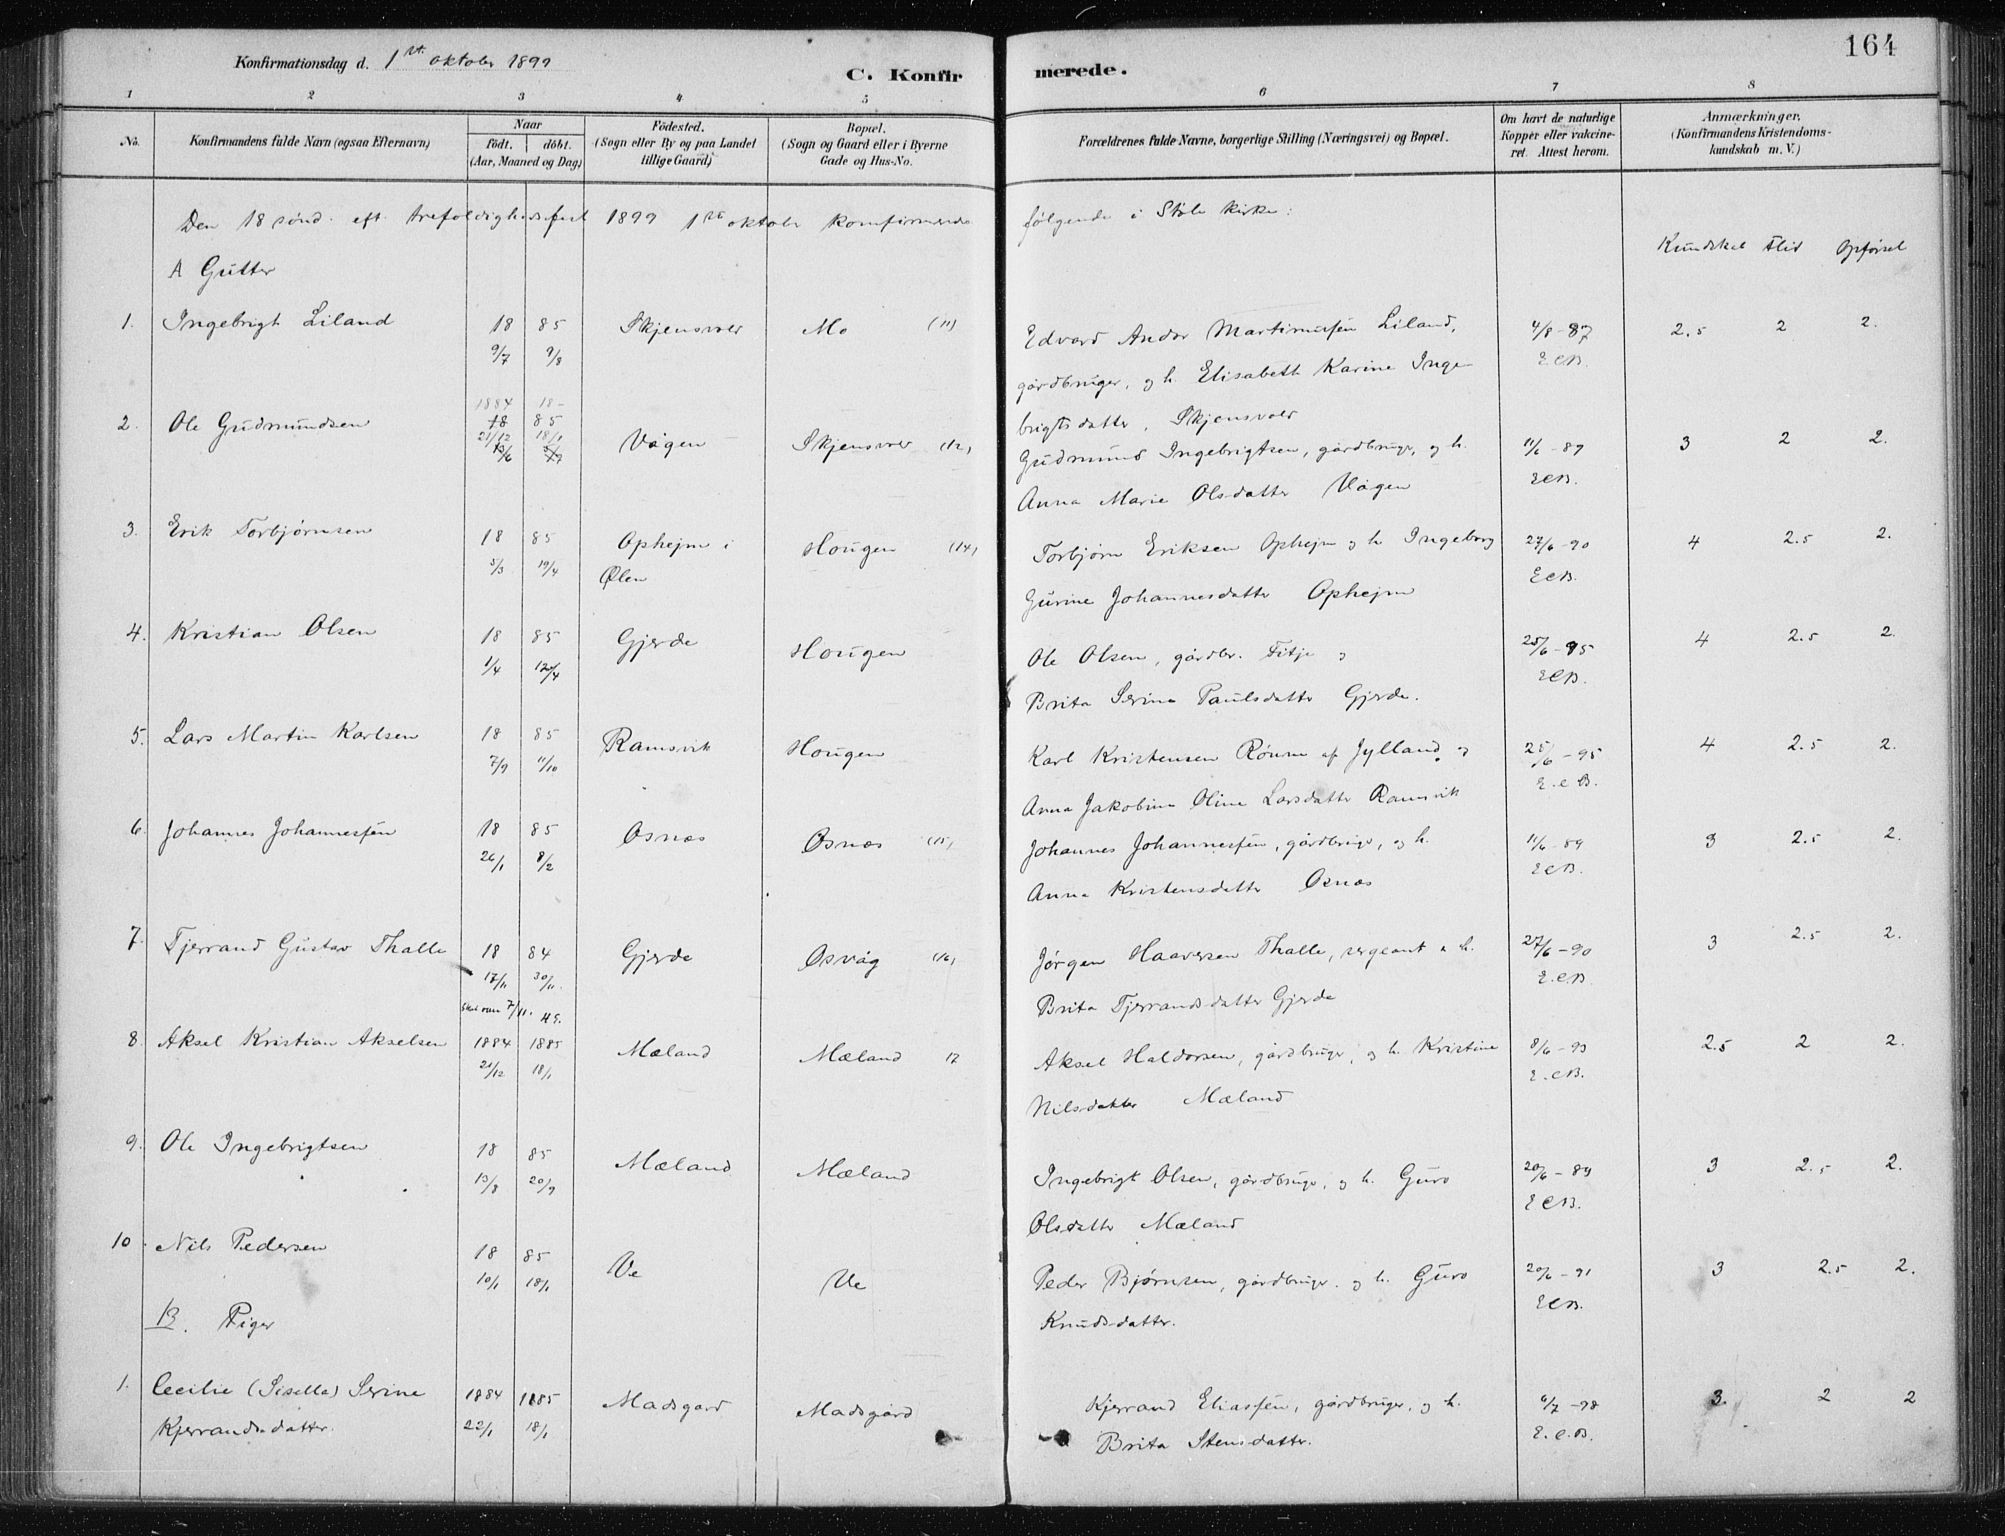 164
Konfirmationsdag d. 1st oktober 1899
C. Konfirmerede.
1 2 3 4 5 6 7 8
No. Konfirmandens fulde Navn (ogsaa Efternavn) Naar født. døbt. (Aar, Maaned og Dag) Fødested. (Sogn eller By og paa Landet tillige Gaard) Bopæl. (Sogn og Gaard eller i Byerne Gade og Hus-No. Forældrenes fulde Navne, borgerlige Stilling (Næringsvei) og Bopæl. Om havt de naturlige Kopper eller vakcineret. Attest herom. Anmærkninger. (Konfirmandens Kristendomskundskab m. V.)
Den 18 sønd. eft. trefoldighedsfest 1899 1ste oktober konfirmeredes følgende i Støle kirke:
Kundskab Flid Opførsel
A Gutter
1. Ingebrigt Liland 18 85 Skjensvær Mo (11) Edvard Andor Martinusen Liland, 4/8-87 2.5 2 2.
9/7 9/8 gårdbruger, og h. Elisabeth Karine Inge- ECB.
brigtsdatter, Skjensvold
2. Ole Gudmundsen 1884 18- 18 85 21/12 18/1 Vågen Skjensvær (12) Gudmund Ingebrigtsen, gårdbruger, og h. 11/6-89 3 2 2.
Anna Marie Olsdatter Vågen ECB.
3. Erik Torbjørnsen 18 85 Ophejm i Hougen (14) Torbjørn Eriksen Ophejm og h. Ingeborg 27/6-90 4 2.5 2.
5/3 19/4 Ølen Gurine Johannesdatter Ophejm ECB.
4. Kristian Olsen 18 85 Gjerde Hougen Ole Olsen, gårdbr. Fitje og 25/6-95 4 2.5 2.
1/4 12/4 Brita Serina Paulsdatter Gjerde. ECB.
5. Lars Martin Karlsen 18 85 Ramsvik Hougen Karl Kristensen Rønne af Jylland og 25/6-95 4 2.5 2.
7/9 11/10 Anna Jakobine Oline Larsdatter Ramsvik E.C.B.
6. Johannes Johannesen 18 85 Osnæs Osnæs (15) Johannes Johannesen, gårdbruger, og h. 11/6-89 3 2.5 2.
26/1 8/2 Anna Kristensdatter Osnæs ECB.
7. Tjerrand Gustav Thalle 18 84 Gjerde Osvåg (16) Jørgen Haaversen Thalle, sergeant & h. 27/6-90 3 2.5 2.
17/11 30/11. Brita Tjerrandsdatter Gjerde E.C.B.
7/11.
8. Aksel Kristian Akselsen 1884 1885 Mæland Mæland 17 Aksel Haldorsen, gårdbruger, og h. Kristine 8/6-93 2.5 2 2.
21/12 18/1 Nilsdatter Mæland E.CB.
9. Ole Ingebrigtsen 18 85 Mæland Mæland Ingebrigt Olsen, gårdbruger, og h. Guro 20/6-89 3 2.5 2.
13/8 20/9 Olsdatter Mæland ECB.
10. Nils Pedersen 18 85 Ve Ve Peder Bjørnsen, gårdbruger. og h. Guro 20/6-91 3 2.5 2.
10/1 18/1 Knudsdatter. ECB.
B. Piger
1. Cecilie (Sisella) Serine 1884 1885 Madsgard Madsgård Kjerrand Eliassen, gårdbruger, og h. 6/7-98 3. 2 2
Kjerrandsdatter. 22/1 18/1 Brita Stensdatter. E.C.B.